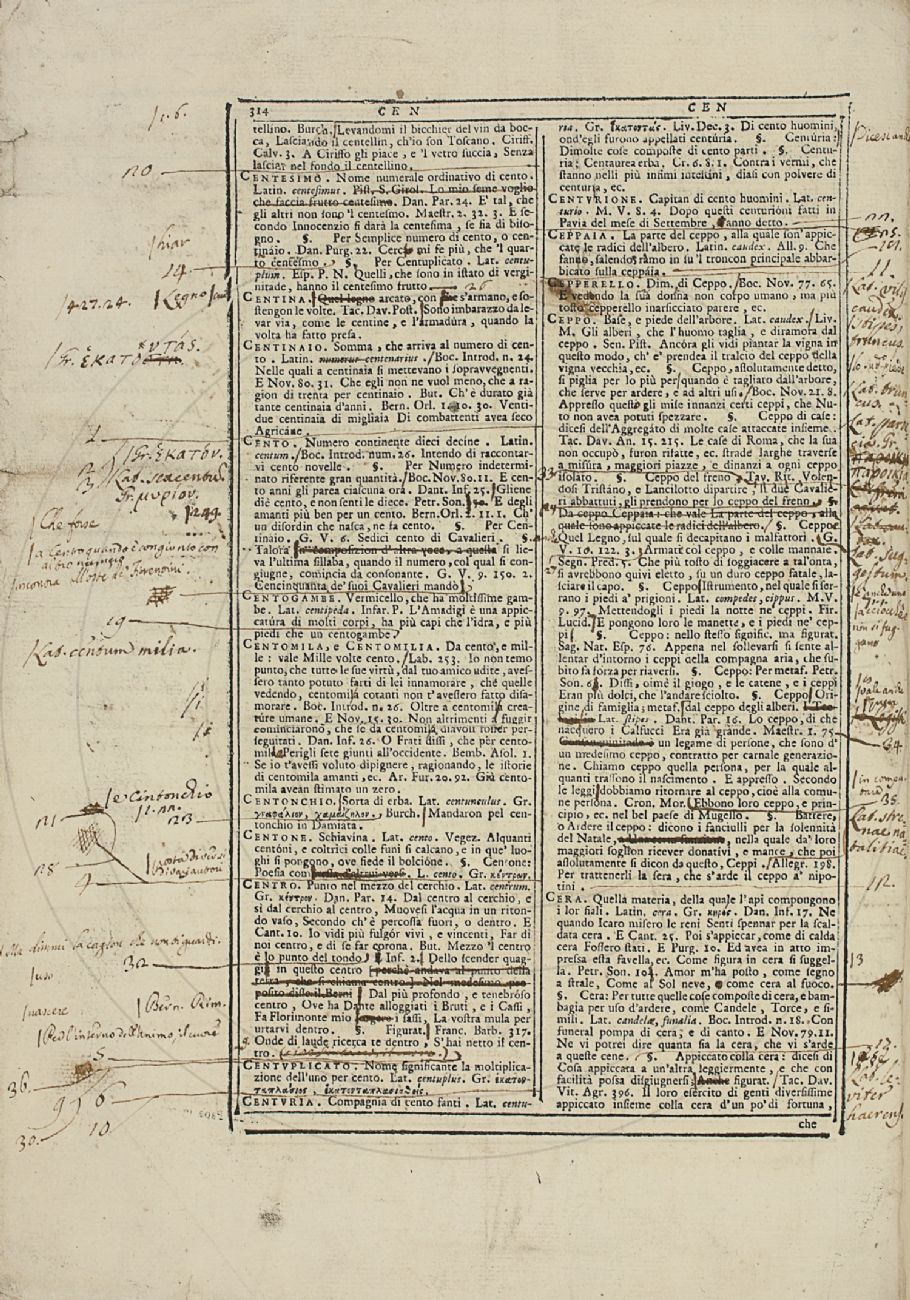 314 CEN CEN
tellino. Burch. Levandomi il bicchier del vin da boc-
ca, Lasciando il centellin, ch'io son Toscano. Ciriff.
Calv. 3. A Ciriffo gli piace, e 'l vetro succia, Senza
lasciar nel fondo il centellino.
CENTESIMO. Nome numerale ordinativo di cento.
Latin. centesimus. Pist. S. Girol. Lo mio seme voglio
che faccia frutto centesimo. Dan. Par. 24. E' tal, che
gli altri non sono 'l centesimo. Maestr. 2. 32. 3. E se-
condo Innocenzio si darà la centesima, se fia di biso-
gno. §. Per Semplice numero di cento, o cen-
tinaio. Dan. Purg. 22. Cerchio mi fe più, che 'l quar-
to centesmo. §. Per Centuplicato. Lat. centu-
plum. Esp. P. N. Quelli, che sono in istato di vergi-
nitade, hanno il centesimo frutto. 26
CENTINA. Quel legno arcato, con che s'armano, e so-
stengon le volte. Tac. Dav. Post. Sono imbarazzo da le-
var via, come le centine, e l'armadura, quando la
volta ha fatto presa.
CENTINAIO. Somma, che arriva al numero di cen-
to. Latin. numerus centenarius. Boc. Introd. n. 24.
Nelle quali a centinaia si mettevano i sopravvegnenti.
E Nov. 80. 31. Che egli non ne vuol meno, che a ra-
gion di trenta per centinaio. But. Ch'è durato già
tante centinaia d'anni. Bern. Orl. 1. 10. 30. Venti-
due centinaia di migliaia Di combattenti avea seco
Agricane.
CENTO. Numero continente dieci decine. Latin.
centum. Boc. Introd. num. 26. Intendo di raccontar-
vi cento novelle. §. Per Numero indetermi-
nato riferente gran quantità. Boc. Nov. 80. 11. E cen-
to anni gli parea ciascuna ora. Dant. Inf. 25. Gliene
diè cento, e non sentì le diece. Petr. Son. 30. E degli
amanti più ben per un cento. Bern. Orl. 2. 11. 1. Ch'
un disordin che nasca, ne fa cento. §. Per Cen-
tinaio. G. V. 6. Sedici cento di Cavalieri. §.
Talora in composizion d'altra voce, a questa si lie-
va l'ultima sillaba, quando il numero, col qual si con-
giugne, comincia da consonante. G. V. 9. 150. 2.
Cencinquanta de' suoi Cavalieri mandò
CENTOGAMBE. Vermicello, che ha moltissime gam-
be. Lat. centipeda. Infar. P. L'Amadigi è una appic-
catura di molti corpi, ha più capi che l'idra, e più
piedi che un centogambe.
CENTOMILA, E CENTOMILIA. Da cento, e mil-
le: vale Mille volte cento. Lab. 253. Io non temo
punto, che tutte le sue virtù, dal tuo amico udite, aves-
sero tanto potuto farti di lei innamorare, che quelle
vedendo, centomila cotanti non t'avessero fatto disa-
morare. Boc. Introd. n. 26. Oltre a centomila crea-
ture umane. E Nov. 15. 30. Non altrimenti a fuggir
cominciarono, che se da centomila diavoli fosser per-
seguitati. Dan. Inf. 26. O Frati dissi, che per cento-
mila Perigli sete giunti all'occidente. Bemb. Asol. 1.
Se io t'avessi voluto dipignere, ragionando, le istorie
di centomila amanti, ec. Ar. Fur. 20. 92. Già cento-
mila avean stimato un zero.
CENTONCHIO. Sorta di erba. Lat. centunculus. Gr.
Burch. Mandaron pel cen-
tonchio in Damiata.
CENTONE. Schiavina. Lat. cento. Vegez. Alquanti
centoni, e coltrici colle funi si calcano, e in que' luo-
ghi si pongono, ove siede il bolcione. §. Centone:
Poesia con L. cento. Gr. κέντρων.
CENTRO. Punto nel mezzo del cerchio. Lat. centrum.
Gr. κέντρον. Dan. Par. 14. Dal centro al cerchio, e
sì dal cerchio al centro, Muovesi l'acqua in un riton-
do vaso, Secondo ch'è percossa fuori, o dentro. E
Cant. 10. Io vidi più fulgór vivi, e vincenti, Far di
noi centro, e di se far corona. But. Mezzo 'l centro
è lo punto del tondo. Inf. 2. Dello scender quag-
giù in questo centro perchè andava al punto della
terra, che si chiama centro. Nel medesimo pro-
posito disse il Berni Dal più profondo, e tenebróso
centro, Ove ha Dante alloggiati i Bruti, e i Cassi,
Fa Floriinonte mio i sassi, La vostra mula per
urtarvi dentro. §. Figurat. Franc. Barb. 317.
Onde di laude ricerca te dentro, S'hai netto il cen-
tro.
CENTUPLICATO. Nome significante la moltiplica-
zione dell'uno per cento. Lat. centuplus. Gr. ἑκατον-
ταπλάσιος, ἑκατονταπλασιοθείς.
CENTURIA. Compagnia di cento fanti. Lat. centu-
ria. Gr. ἑκατοστύς. Liv. Dec. 3. Di cento huomini,
ond'egli furono appellati centuria. §. Centuria:
Dimolte cose composte di cento parti. §. Centu-
ria: Centaurea erba. Cr. 6. 8. 1. Contra i vermi, che
stanno nelli più infimi intestini, diasi con polvere di
centuria, ec.
CENTURIONE. Capitan di cento huomini. Lat. cen-
turio. M. V. 8. 4. Dopo questi centurioni fatti in
Pavia del mese di Settembre, l'anno detto.
CEPPAIA. La parte del ceppo, alla quale son'appic-
cate le radici dell'albero. Latin. caudex. All. 9. Che
fanno, salendo, ramo in su 'l troncon principale abbar-
bicato sulla ceppaia.
CEPPERELLO. Dim. di Ceppo. Boc. Nov. 77. 65.
E vedendo la sua donna non corpo umano, ma più
tosto cepperello inarsicciato parere, ec.
CEPPO. Base, e piede dell'arbore. Lat. caudex. Liv.
M. Gli alberi, che l'huomo taglia, e diramora dal
ceppo. Sen. Pist. Ancóra gli vidi piantar la vigna in
questo modo, ch'e' prendea il tralcio del ceppo della
vigna vecchia, ec. §. Ceppo, assolutamente detto,
si piglia per lo più per quando è tagliato dall'arbore,
che serve per ardere, e ad altri usi. Boc. Nov. 21. 8.
Appresso questo gli mise innanzi certi ceppi, che Nu-
to non avea potuti spezzare. §. Ceppo di case:
dicesi dell'Aggregato di molte case attaccate insieme.
Tac. Dav. An. 15. 215. Le case di Roma, che la sua
non occupò, furon rifatte, ec. strade larghe traverse
a misura, maggiori piazze, e dinanzi a ogni ceppo
isolato. §. Ceppo del freno. Tav. Rit. Volen-
dosi Tristano, e Lancilotto dipartire, li due Cavalie-
ri abbattuti, gli prendono per lo ceppo del freno. §.
Da ceppo Ceppaia: che vale La parte del ceppo, alla
quale sono appiccate le radici dell'albero. §. Ceppo:
Quel Legno, sul quale si decapitano i malfattori. G.
V. 10. 122. 3. Armati col ceppo, e colle mannaie.
Segn. Pred. 5. Che più tosto di soggiacere a tal'onta,
si avrebbono quivi eletto, su un duro ceppo fatale, la-
sciare il capo. §. Ceppo Istrumento, nel quale si ser-
rano i piedi a' prigioni. Lat. compedes, cippus. M. V.
9. 97. Mettendogli i piedi la notte ne' ceppi. Fir.
Lucid. E pongono loro le manette, e i piedi ne' cep-
pi. §. Ceppo: nello stesso signific. ma figurat.
Sag. Nat. Esp. 76. Appena nel sollevarsi si sente al-
lentar d'intorno i ceppi della compagna aria, che su-
bito fa forza per riaversi. §. Ceppo: Per metaf. Petr.
Son. 68. Dissi, oimè il giogo, e le catene, e i ceppi
Eran più dolci, che l'andare sciolto. §. Ceppo Ori-
gine di famiglia; metaf. dal ceppo degli alberi.
Lat. stipes. Dant. Par. 16. Lo ceppo, di che
nacquero i Calfucci Era già grande. Maestr. 1. 75
Consanguinitade è un legame di persone, che sono d'
un medesimo ceppo, contratto per carnale generazio-
ne. Chiamo ceppo quella persona, per la quale al-
quanti trassono il nascimento. E appresso. Secondo
le leggi dobbiamo ritornare al ceppo, cioè alla comu-
ne persona. Cron. Mor. Ebbono loro ceppo, e prin-
cipio, ec. nel bel paese di Mugello. §. Battere,
o Ardere il ceppo: dicono i fanciulli per la solennità
del Natale, nella quale da' loro
maggiori soglion ricever donativi, e mance, che poi
assolutamente si dicon da questo, Ceppi. Allegr. 198.
Per trattenerli la sera, che s'arde il ceppo a' nipo-
tini.
CERA. Quella materia, della quale l'api compongono
i lor fiali. Latin. cera. Gr. κηρός. Dan. Inf. 17. Ne
quando Icaro misero le reni Sentì spennar per la scal-
data cera. E Cant. 25. Poi s'appiccar, come di calda
cera Fossero stati. E Purg. 10. Ed avea in atto im-
pressa esta favella, ec. Come figura in cera si suggel-
la. Petr. Son. 103. Amor m'ha posto, come segno
a strale, Come al Sol neve, e come cera al fuoco.
§. Cera: Per tutte quelle cose composte di cera, e bam-
bagia per uso d'ardere, come Candele, Torce, e si-
mili. Lat. candelæ, funalia. Boc. Introd. n. 18. Con
funeral pompa di cera, e di canto. E Nov. 79. 11.
Ne vi potrei dire quanta sia la cera, che vi s'arde
a queste cene. §. Appiccato colla cera: dicesi di
Cosa appiccata a un'altra leggiermente, e che con
facilità possa disgiugnersi: Anche figurat. Tac. Dav.
Vit. Agr. 396. Il loro esercito di genti diversissime
appiccato insieme colla cera d'un po' di fortuna,
che
20
14
427. 24.
Legno
Gr. ἑκατὸν.
Lat. sexcenties
Gr. μυρίον.
Che fosse
19
Lat. centum milia.
e Cintonchio
21
23
9
32
Bern. Rim.
5
36.
9 6
30. 10
22.
11
34
35.
12.
13